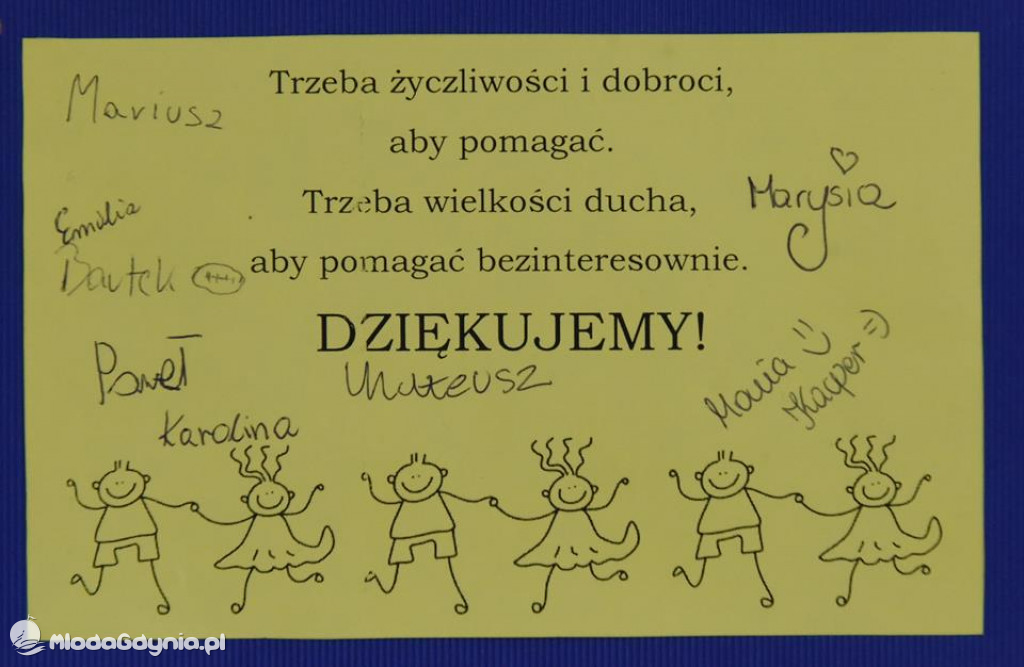 Mariusz
Trzeba życzliwości i dobroci,
aby pomagać.
Marysia
Trzeba wielkości ducha,
Emilia
aby pomagać bezinteresownie.
Bartek
DZIĘKUJEMY!
Paweł
Mateusz
Maria :)
Kacper =)
Karolina
MlodaGdynia.pl